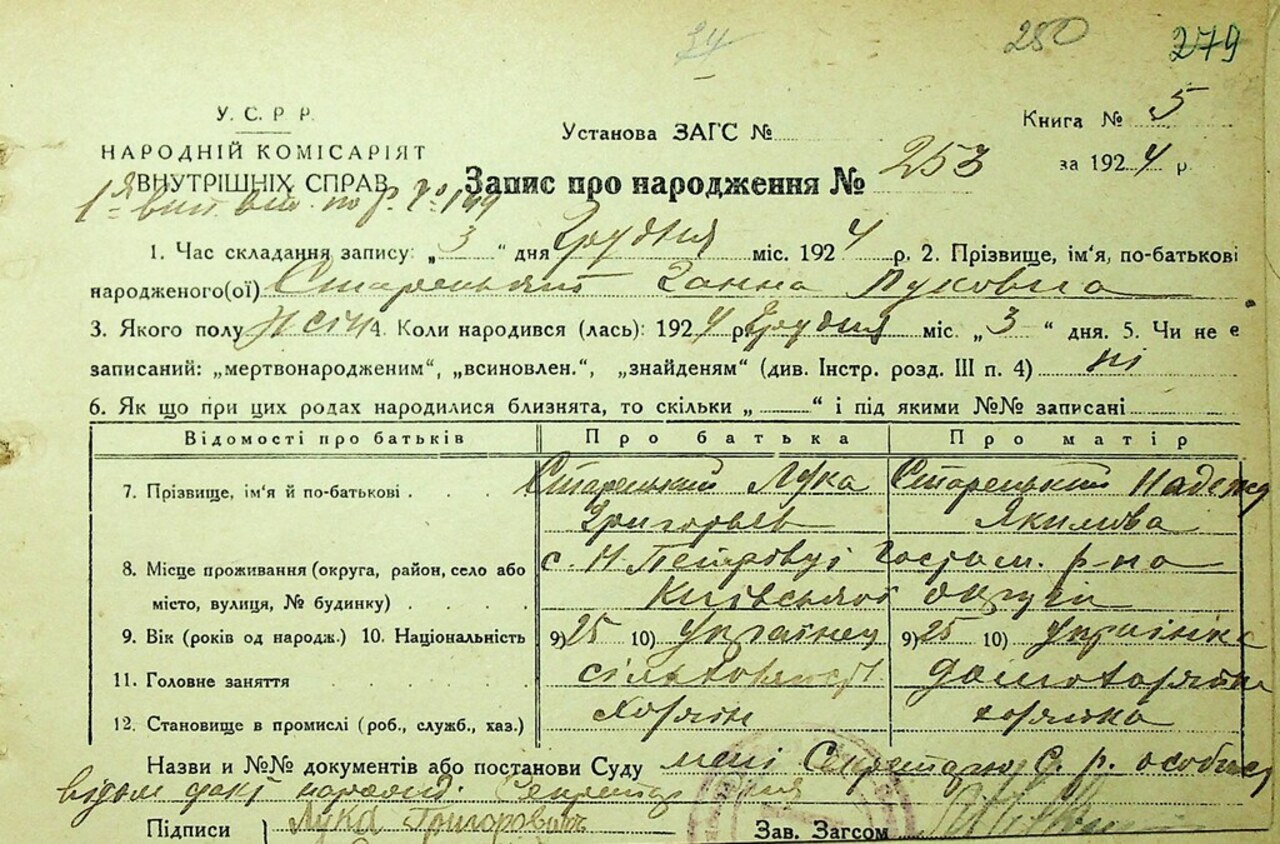 34 250 279
У. С. Р Р.
НАРОДНІЙ КОМІСАРІЯТ
ВНУТРІШНІХ СПРАВ
Установа ЗАГС №
Книга № 5
за 1924 р.
Запис про народження № 253
1. Час складання запису: „3 “ дня Грудня міс. 1924 р. 2. Прізвище, ім'я, по-батькові
народженого(ої) Ганна Луковна
3. Якого полу жіН 4. Коли народився (лась): 1924 р. Грудня міс. „3 “ дня. 5. Чи не є
записаний: „мертвонародженим“, „всиновлен.“, „знайденям“ (див. Інстр. розд. III п. 4) ні
6. Як що при цих родах народилися близнята, то скільки „ “ і під якими №№ записані
Відомості про батьків Про батька Про матір
7. Прізвище, ім'я й по-батькові Старецький Лука Старецький Надежд
Григорьев Якимова
8. Місце проживання (округа, район, село або с. Н Петрівці Гостом. р-на
місто, вулиця, № будинку) Київської округи
9. Вік (років од народж.) 10. Національність 9) 25 10) Українец 9) 25 10) Українка
11. Головне заняття
12. Становище в промислі (роб., служб., хаз.) Хозяїн хозяйка
Назви и №№ документів або постанови Суду мені Секретарю С. р. особист
відом факт народж. Секретар
Підписи Лука Григорович Зав. Загсом